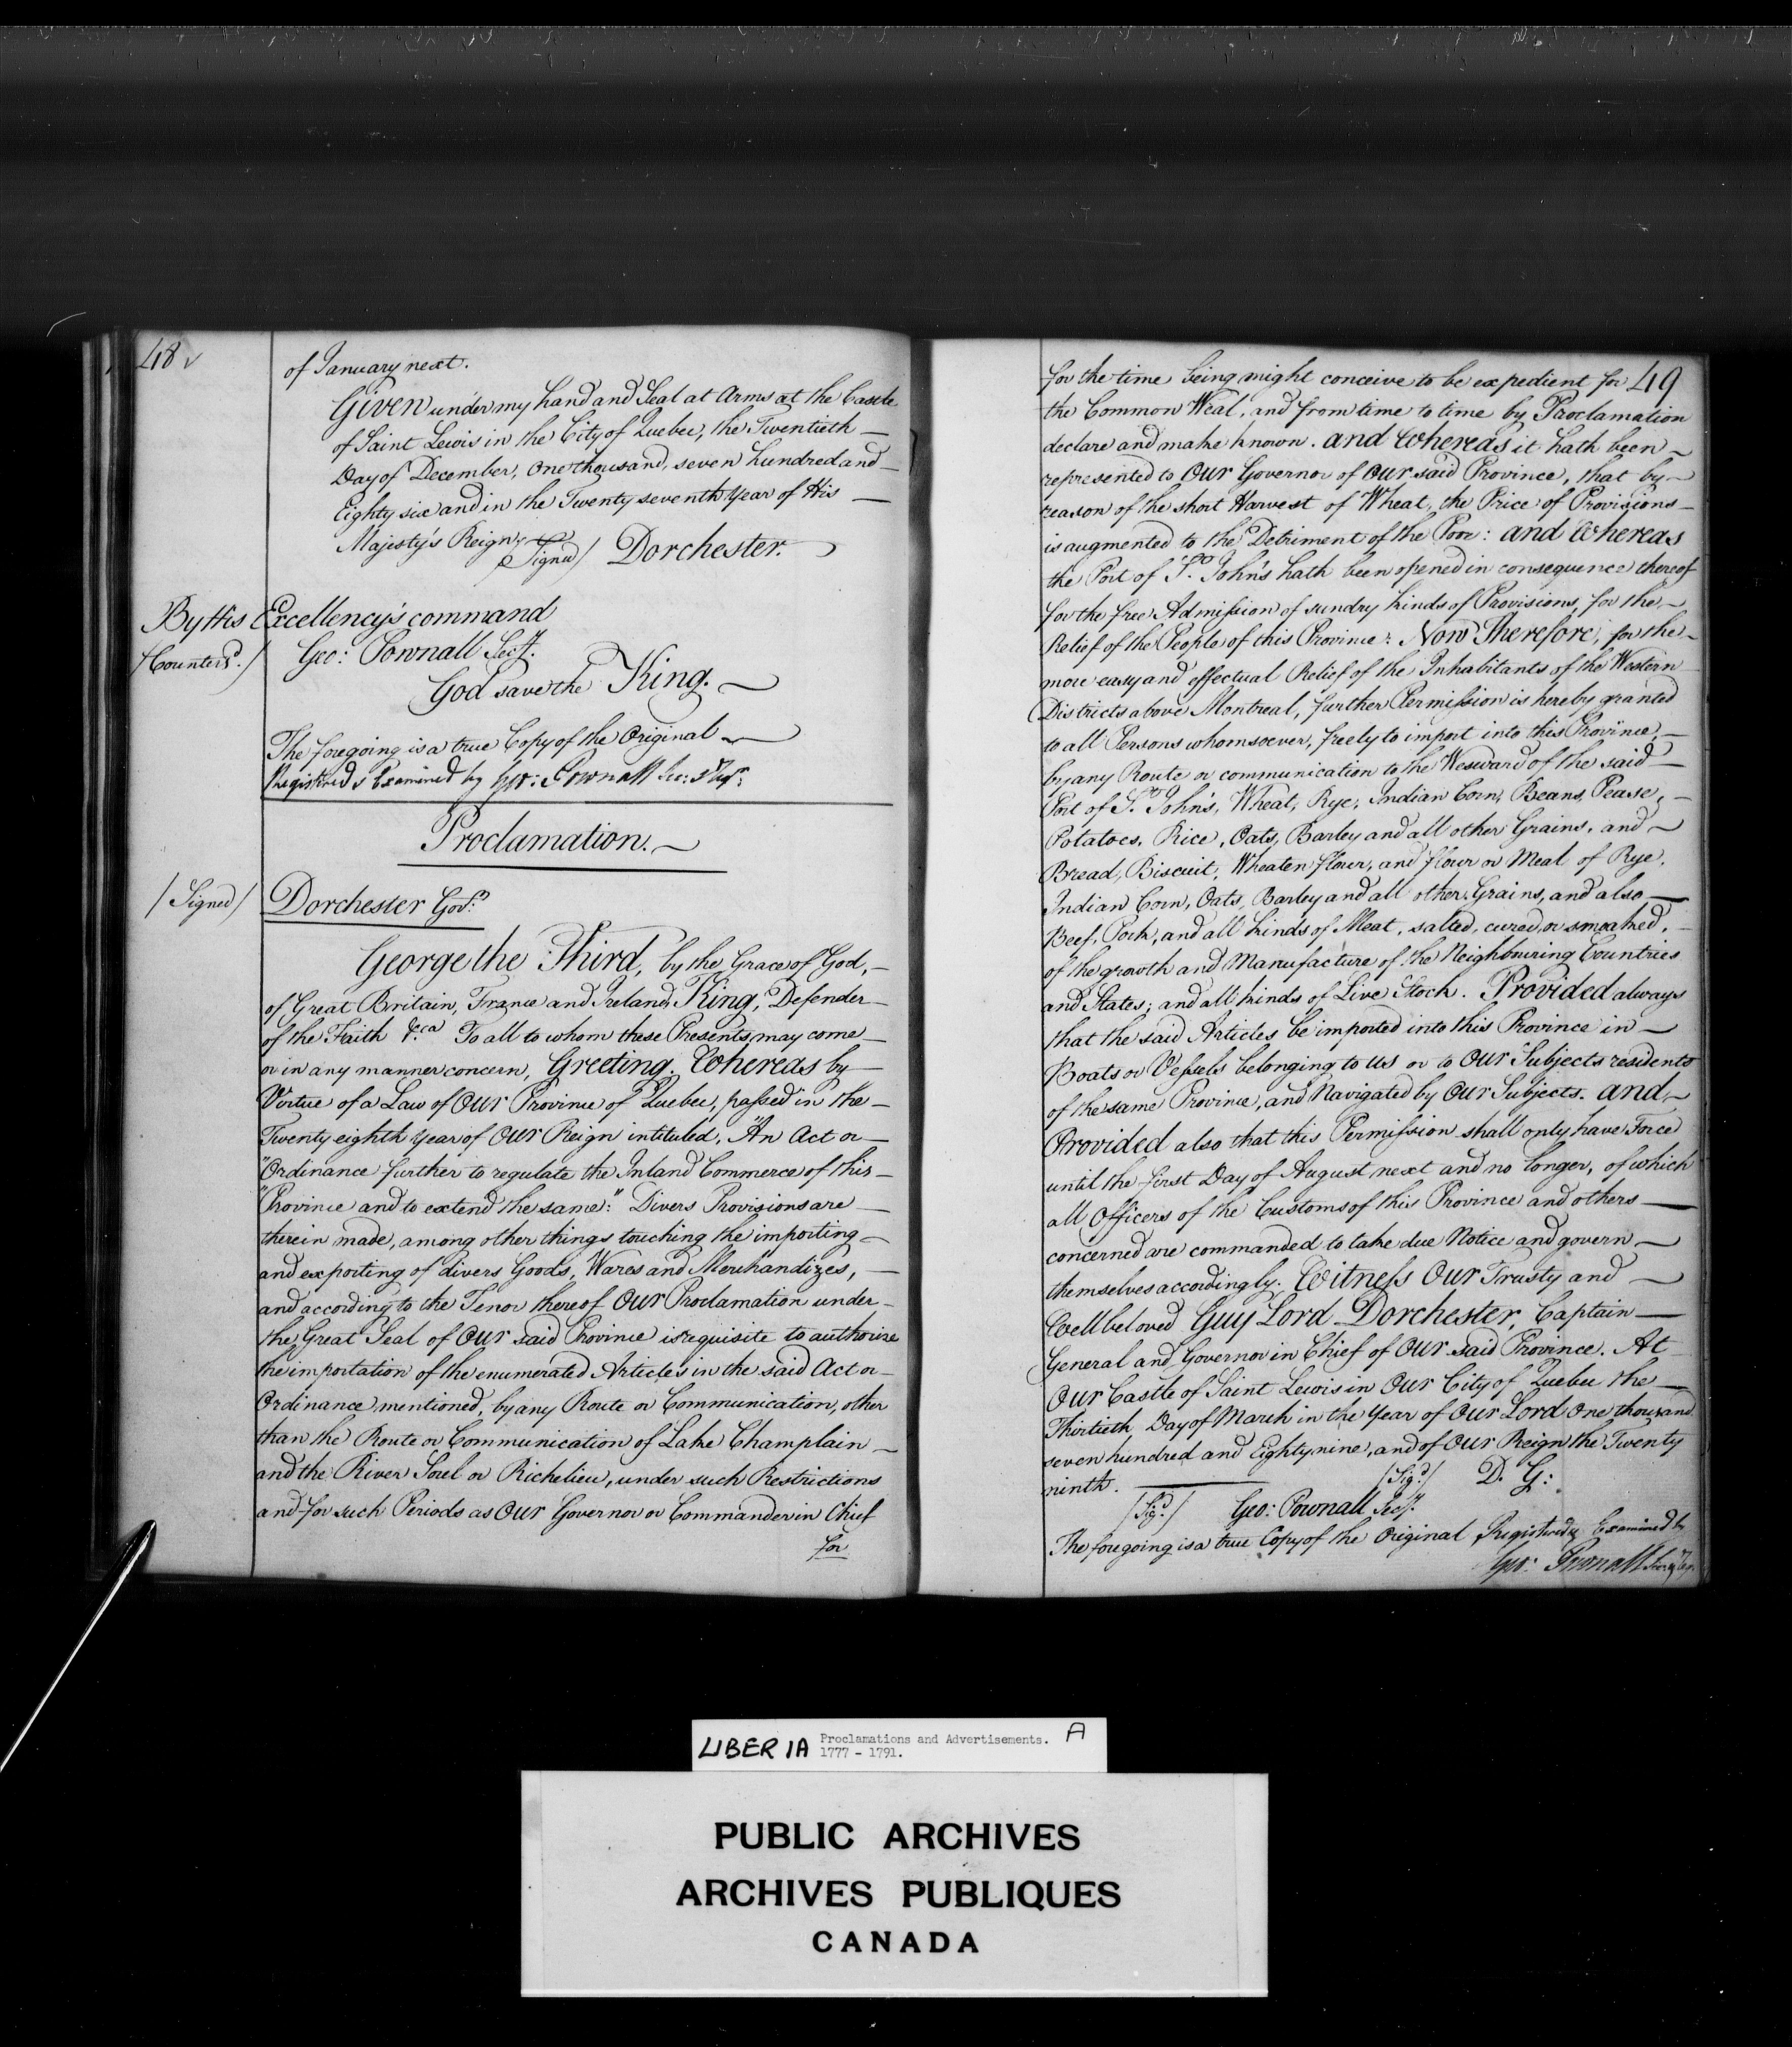 48
of January next.
Given under my hand and Seal at Arms at the Castle
of Saint Lewis in the City of Quebec, the Twentieth
Day of December, One thousand, seven hundred and
Eighty six and in the Twenty seventh Year of His
Majesty's Reign.
/Signed/ Dorchester.
By His Excellency's command
/Counters^d./ Geo: Pownall Sec^y.
God save the King.
The foregoing is a true Copy of the Original
Registered & Examined by Geo: Pownall Sec: & Reg^r:
Proclamation.
/Signed/ Dorchester Gov^r:
George the Third, by the Grace of God,
of Great Britain, France and Ireland, King, Defender
of the Faith &.ca To all to whom these Presents may come
or in any manner concern, Greeting. Whereas by
Virtue of a Law of Our Province of Quebec, passed in the
Twenty eighth Year of Our Reign intituled, "An Act or
"Ordinance further to regulate the Inland Commerce of this
"Province and to extend the same:" Divers Provisions are
therein made, among other things touching the importing
and exporting of divers Goods, Wares and Merchandizes,
and according to the Tenor thereof Our Proclamation under
the Great Seal of Our said Province is requisite to authorize
the importation of the enumerated Articles in the said Act or
Ordinance mentioned, by any Route or Communication, other
than the Route or Communication of Lake Champlain
and the River Sorel or Richelieu, under such Restrictions
and for such Periods as Our Governor or Commander in Chief
for
49
for the time being might conceive to be expedient for
the Common Weal, and from time to time by Proclamation
declare and make known. And Whereas it hath been
represented to Our Governor of Our said Province, that by
reason of the short Harvest of Wheat, the Price of Provisions
is augmented to the Detriment of the Poor: And Whereas
the Port of S^t. John's hath been opened in consequence thereof
for the free Admission of sundry kinds of Provisions, for the
Relief of the People of this Province: Now Therefore, for the
more easy and effectual Relief of the Inhabitants of the Western
Districts above Montreal, further Permission is hereby granted
to all Persons whomsoever, freely to import into this Province,
by any Route or communication to the Wesward of the said
Port of S^t. John's, Wheat, Rye, Indian Corn, Beans, Pease,
Potatoes, Rice, Oats, Barley and all other Grains, and
Bread, Biscuit, Wheaten flour, and flour or Meal of Rye,
Indian Corn, Oats, Barley and all other Grains, and also
Beef, Pork, and all kinds of Meat, salted, cured, or smoaked,
of the growth and Manufacture of the Neighbouring Countries
and States; and all kinds of Live Stock. Provided always
that the said Articles be imported into this Province in
Boats or Vessels belonging to Us or to Our Subjects residents
of the same Province, and Navigated by Our Subjects. And
Provided also that this Permission shall only have Force
until the first Day of August next and no longer, of which
all Officers of the Customs of this Province and others
concerned are commanded to take due Notice and govern
themselves accordingly. Witness Our Trusty and
Well beloved Guy Lord Dorchester, Captain
General and Governor in Chief of Our said Province. At
Our Castle of Saint Lewis in Our City of Quebec the
Thirtieth Day of March in the Year of Our Lord One thousand
seven hundred and Eighty nine, and of Our Reign the Twenty
ninth. /Sig^d:/ D. G:
/Sig^d:/ Geo: Pownall Sec^y.
The foregoing is a true Copy of the Original Registered & Examined by
Geo: Pownall Sec: & Reg.
LIBER IA Proclamations and Advertisements. A
1777 - 1791.
PUBLIC ARCHIVES
ARCHIVES PUBLIQUES
CANADA